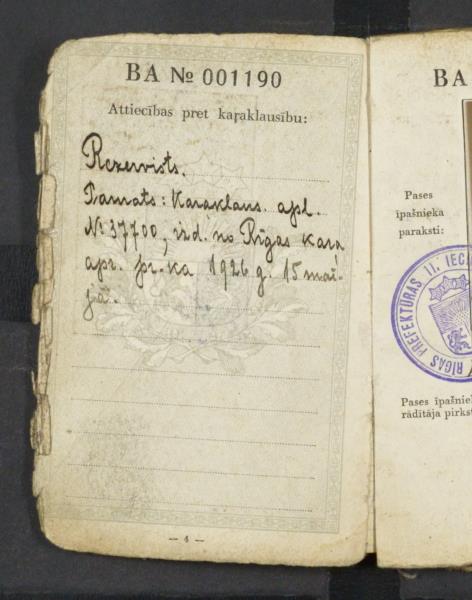 BA № 001190
Attiecības pret kaŗaklausību:
Rezervists.
Pamats: Karaklaus. apl.
№ 37700, izd. no Rīgas kara
apr. pr-ka 1926 g. 15 mai-
jā.
— 4 —
BA
Pases
īpašnieka
paraksti:
RĪGAS PREFEKTŪRAS II. IECIR
Pases īpašniek
rādītāja pirkst